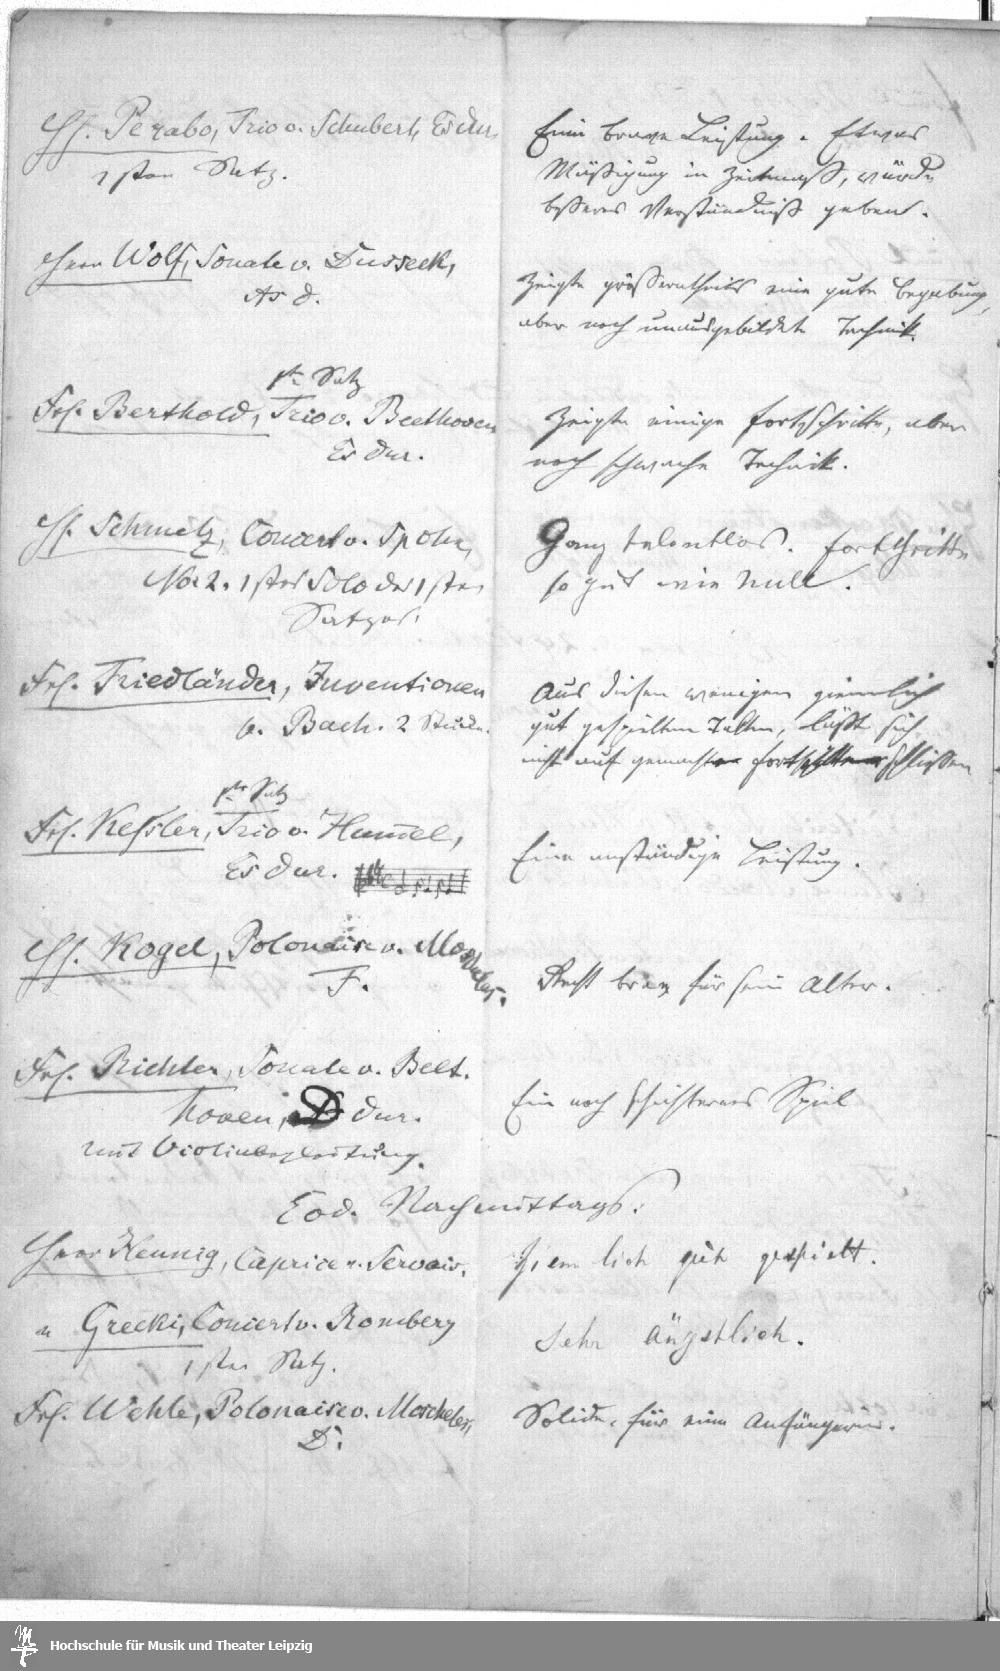 H. Perabo, Trio v. Schubert, Es dur,
1sten Satz.
Eine brave Leistung. Etwas
Mäßigung in Zeitmaß, würde
besseres Verständniß geben.
Herr Wolf, Sonate v. Dusseck,
As d.
Zeigte größerntheils eine gute Begabung,
aber noch unausgebildete Technik.
1ster Satz
Frl. Berthold, Trio v. Beethoven
Es dur.
Zeigte einige Fortschritte, aber
noch schwache Technik.
H. Schmelz, Concert v. Spohr,
No 2. 1stes Solo des 1sten
Satzes.
Ganz talentlos. Fortschritte
so gut wie Null.
Frl. Friedländer, Inventionen
v. Bach. 2 Stücke.
Aus diesen wenigen ziemlich
gut gespielten Takten, läßt sich
nicht auf gemachte Fortschritte schließen
1ster Satz
Frl. Keßler, Trio v. Hummel,
Es dur.
Eine anständige Leistung.
H. Kogel, Polonaise v. Moscheles.
F.
Recht brav für sein Alter.
Frl. Richter, Sonate v. Beet-
hoven, D dur.
mit Violinbegleitung.
Ein noch schüchternes Spiel
Eod. Nachmittags:
Herr Hennig, Caprice v. Servais,
Ziemlich gut gespielt.
" Grecki, Concert v. Romberg
1ster Satz.
Sehr ängstlich.
Frl. Wehle, Polonaise v. Moscheles,
D.
Solide, für eine Anfängerin.
Hochschule für Musik und Theater Leipzig